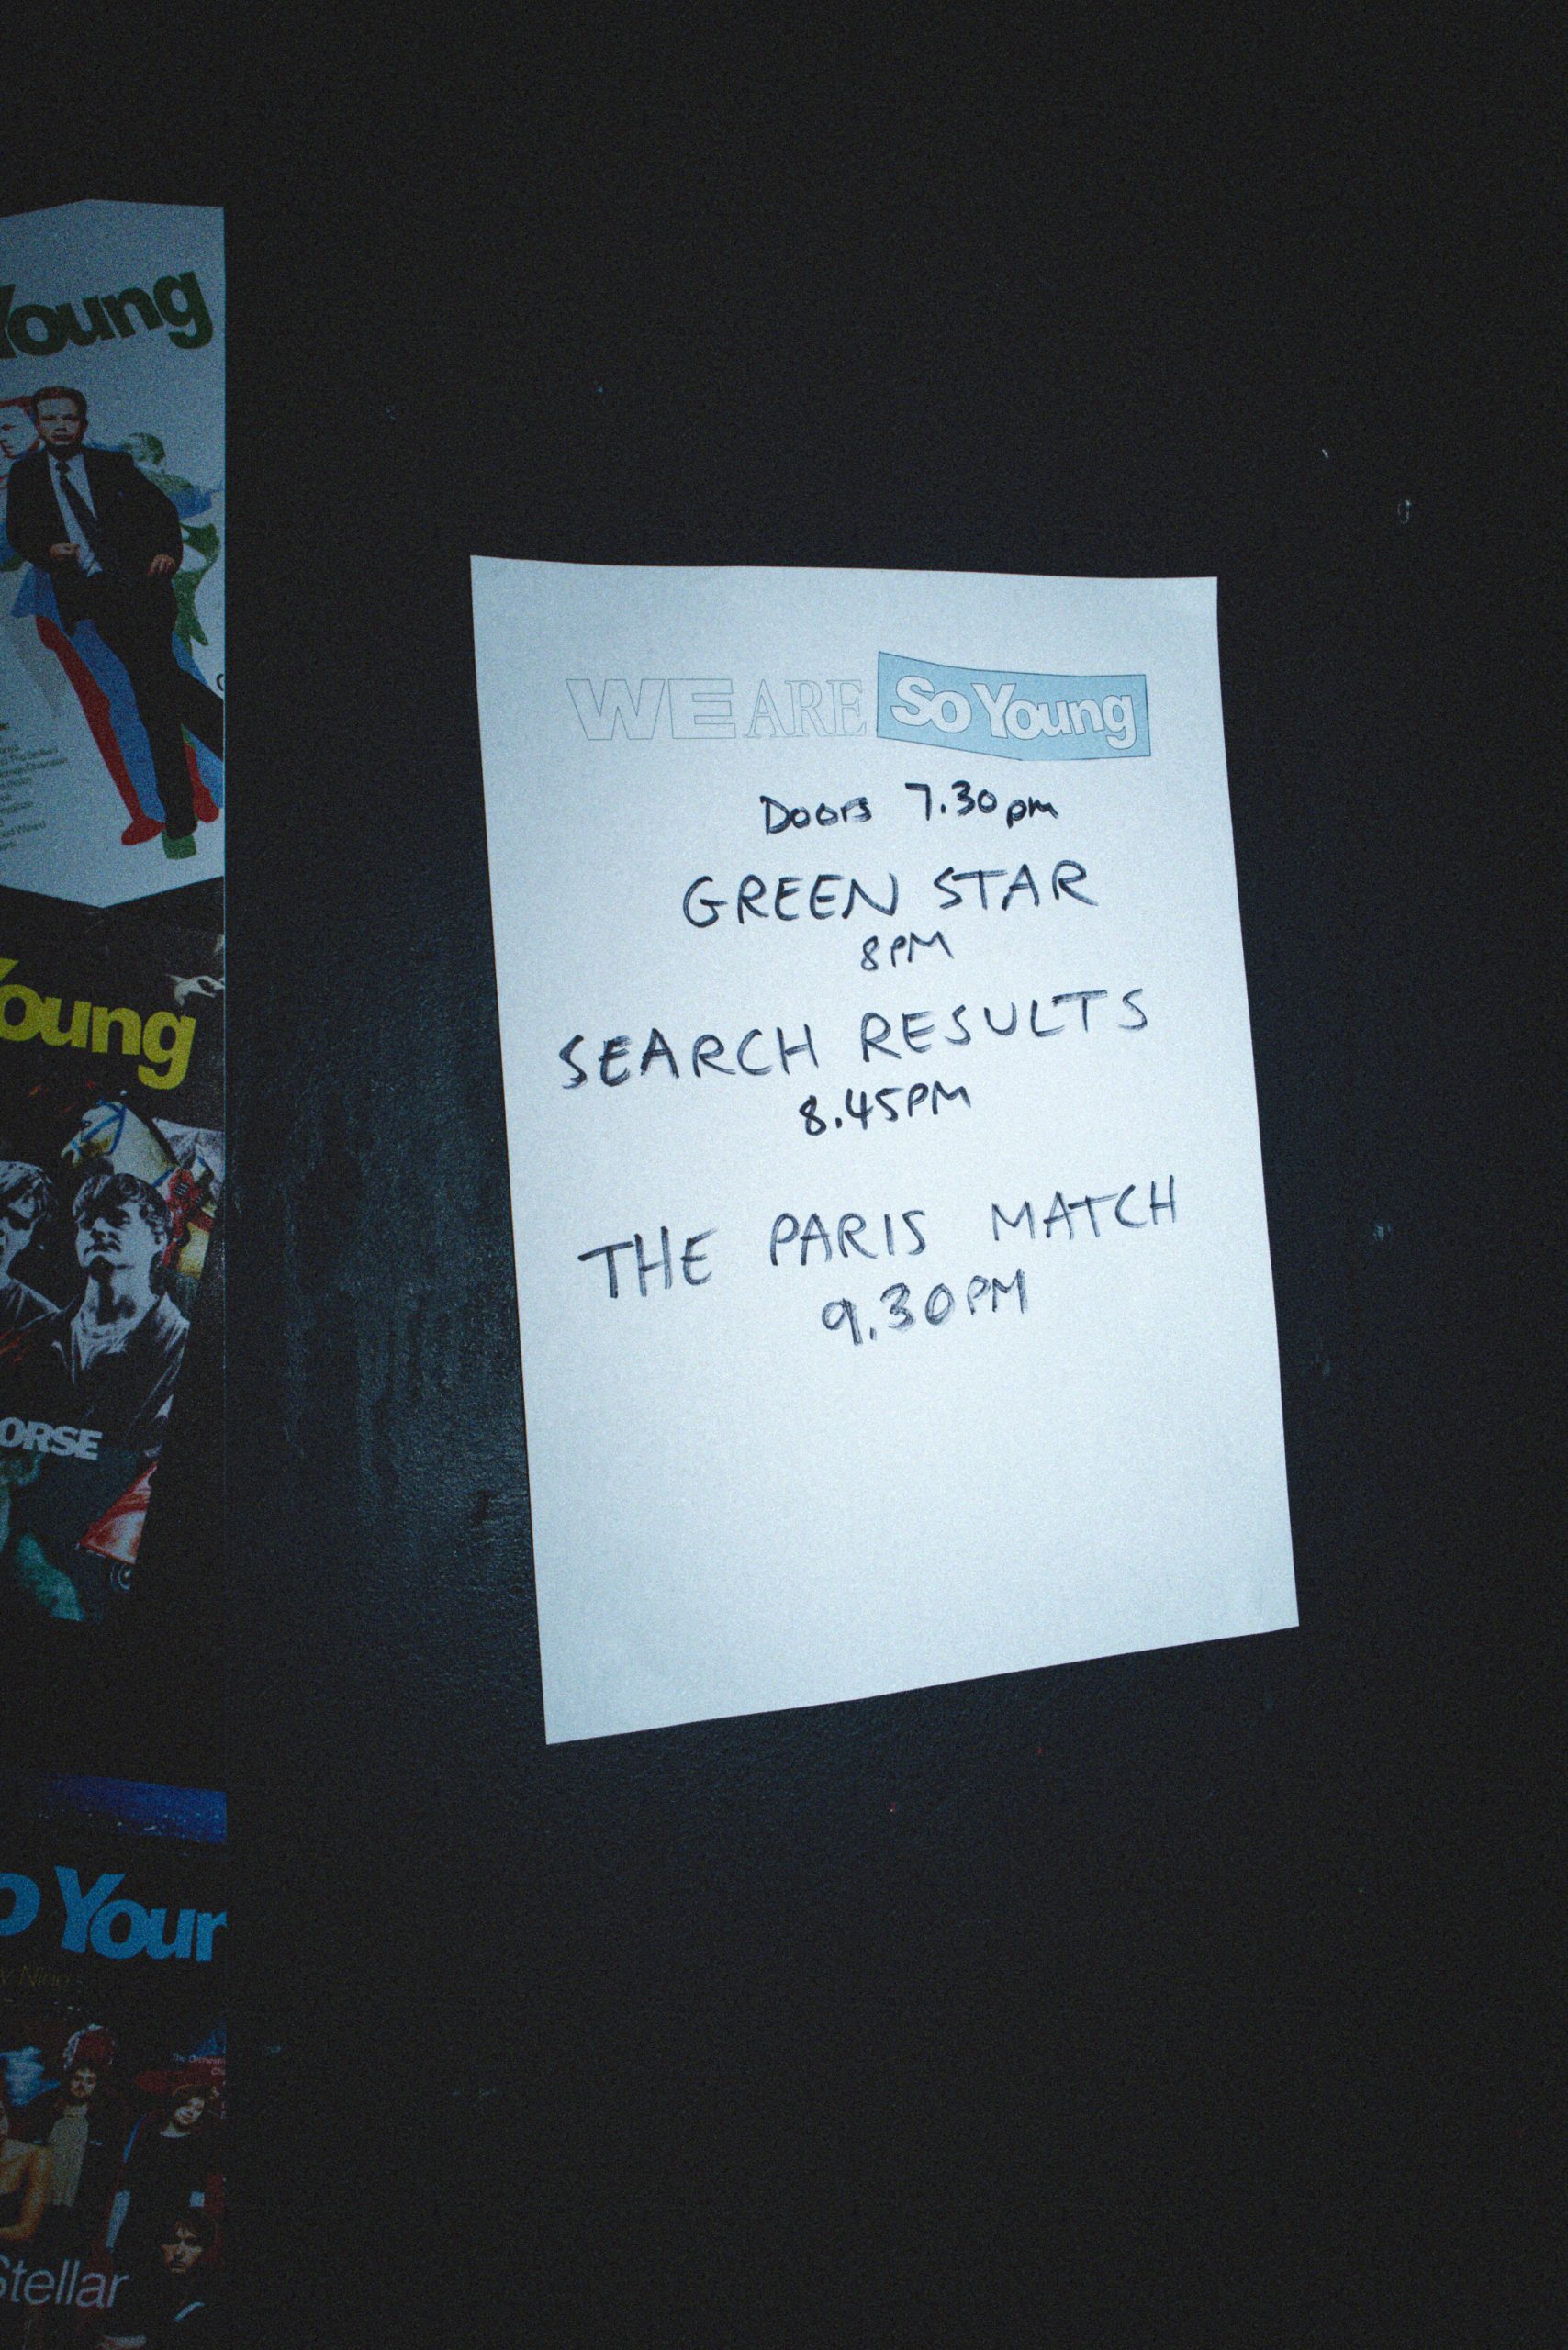 Young
Young
ORSE
Your
Stellar
WE ARE So Young
Doors 7.30pm
GREEN STAR
8PM
SEARCH RESULTS
8.45PM
THE PARIS MATCH
9.30PM